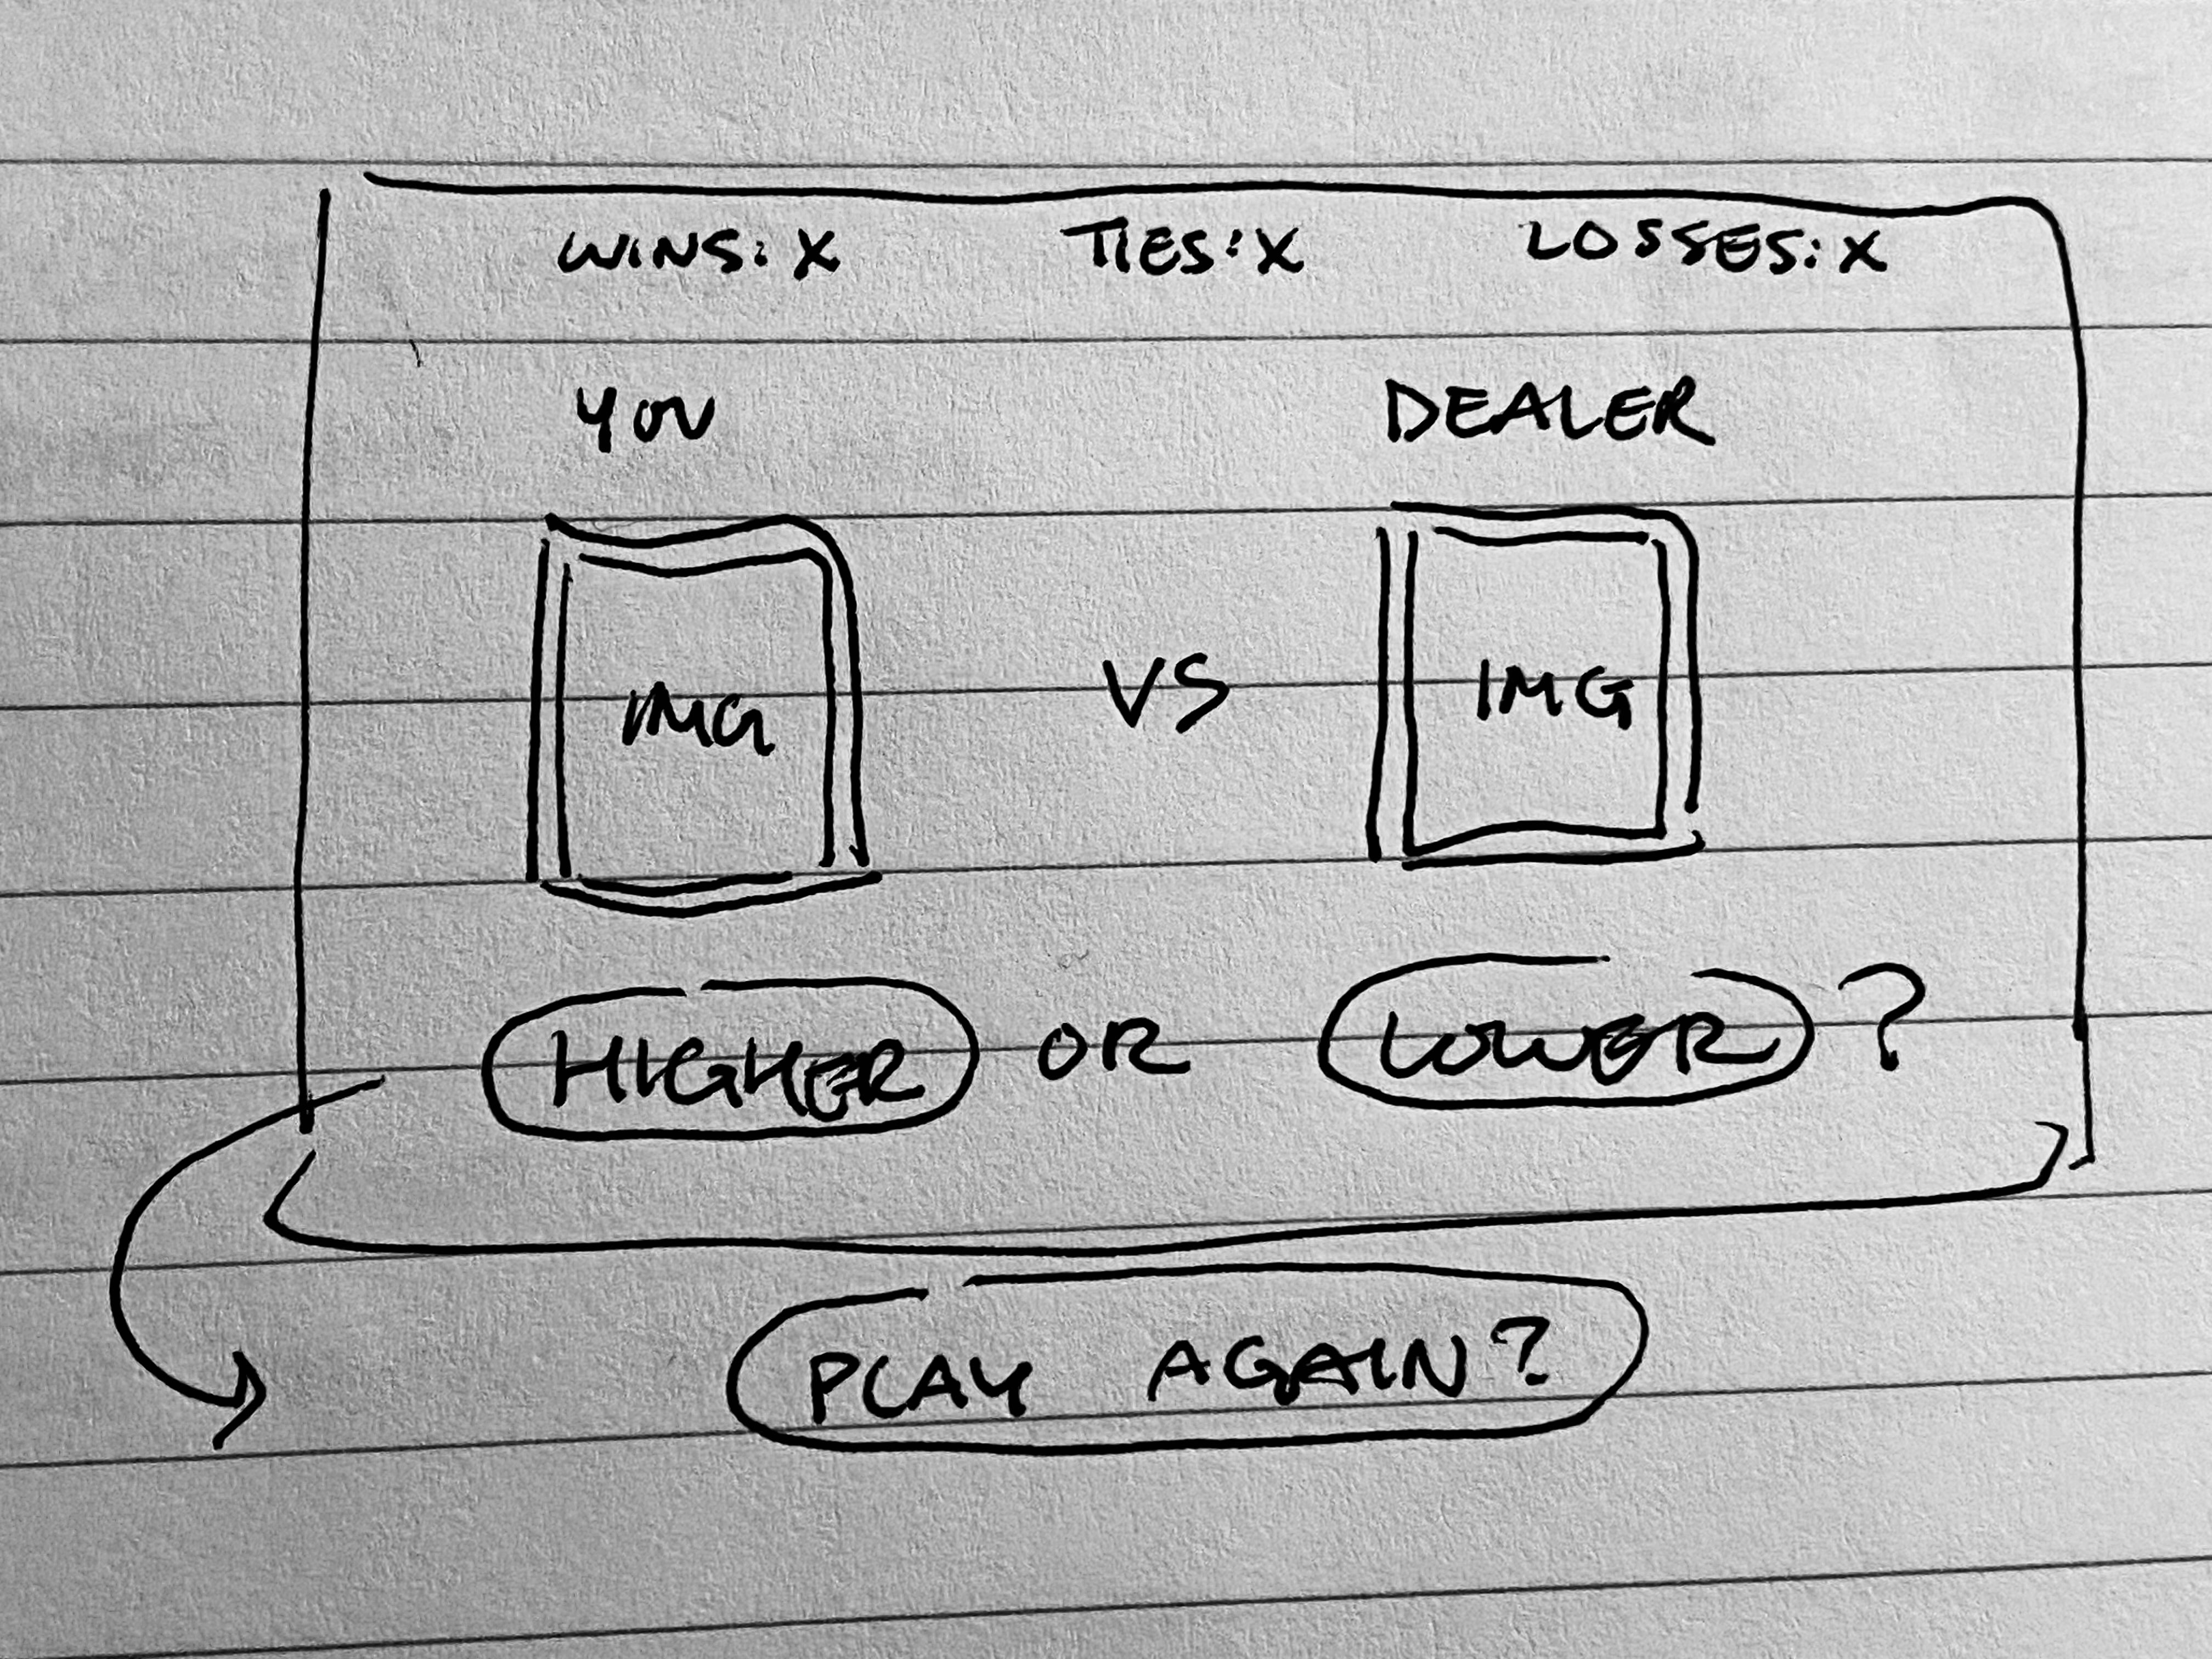 WINS: X TIES: X LOSSES: X
YOU DEALER
IMG VS IMG
HIGHER OR LOWER ?
PLAY AGAIN?